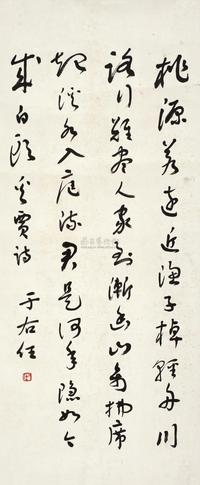 桃源若遠近漁子棹輕舟川
路行難盡人家到漸幽山禽拂席
起溪水入庭流君是何年隱如今
成白頭 賈詩
于右任